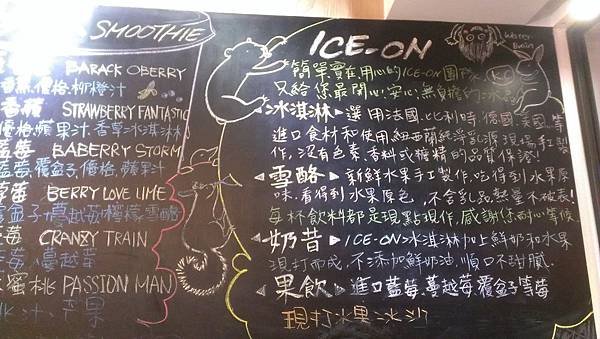 SMOOTHIE
BARACK OBERRY
香蕉、優格、柳橙汁
STRAWBERRY FANTASTIC
優格、蘋果汁、香草冰淇淋
藍莓 BABERRY STORM
藍莓、覆盆子、優格、蘋果汁
莓 BERRY LOVE LIME
盆子、蔓越莓、檸檬、雪酪
莓 CRANZY TRAIN
莓、蔓越莓
蜜桃 PASSION MAN
桃汁、芒果
ICE-ON
Water Brain
簡單實在用心的ICE-ON團隊
又給您最開心、安心、無負擔的
冰淇淋 選用法國、比利時、德國、美國等
進口食材和使用紐西蘭純淨乳源現場手工製
作,沒有色素、香料或糖精的品質保證!
雪酪 新鮮水果手工製作,吃得到水果原
味,看得到水果原色,不含乳品熱量不破表!
每杯飲料都是現點現作,感謝您耐心等候
奶昔 ICE-ON冰淇淋加上鮮奶和水果
現打而成,不添加鮮奶油,順口不甜膩.
果飲 進口藍莓、蔓越莓、覆盆子等莓
現打水果冰沙